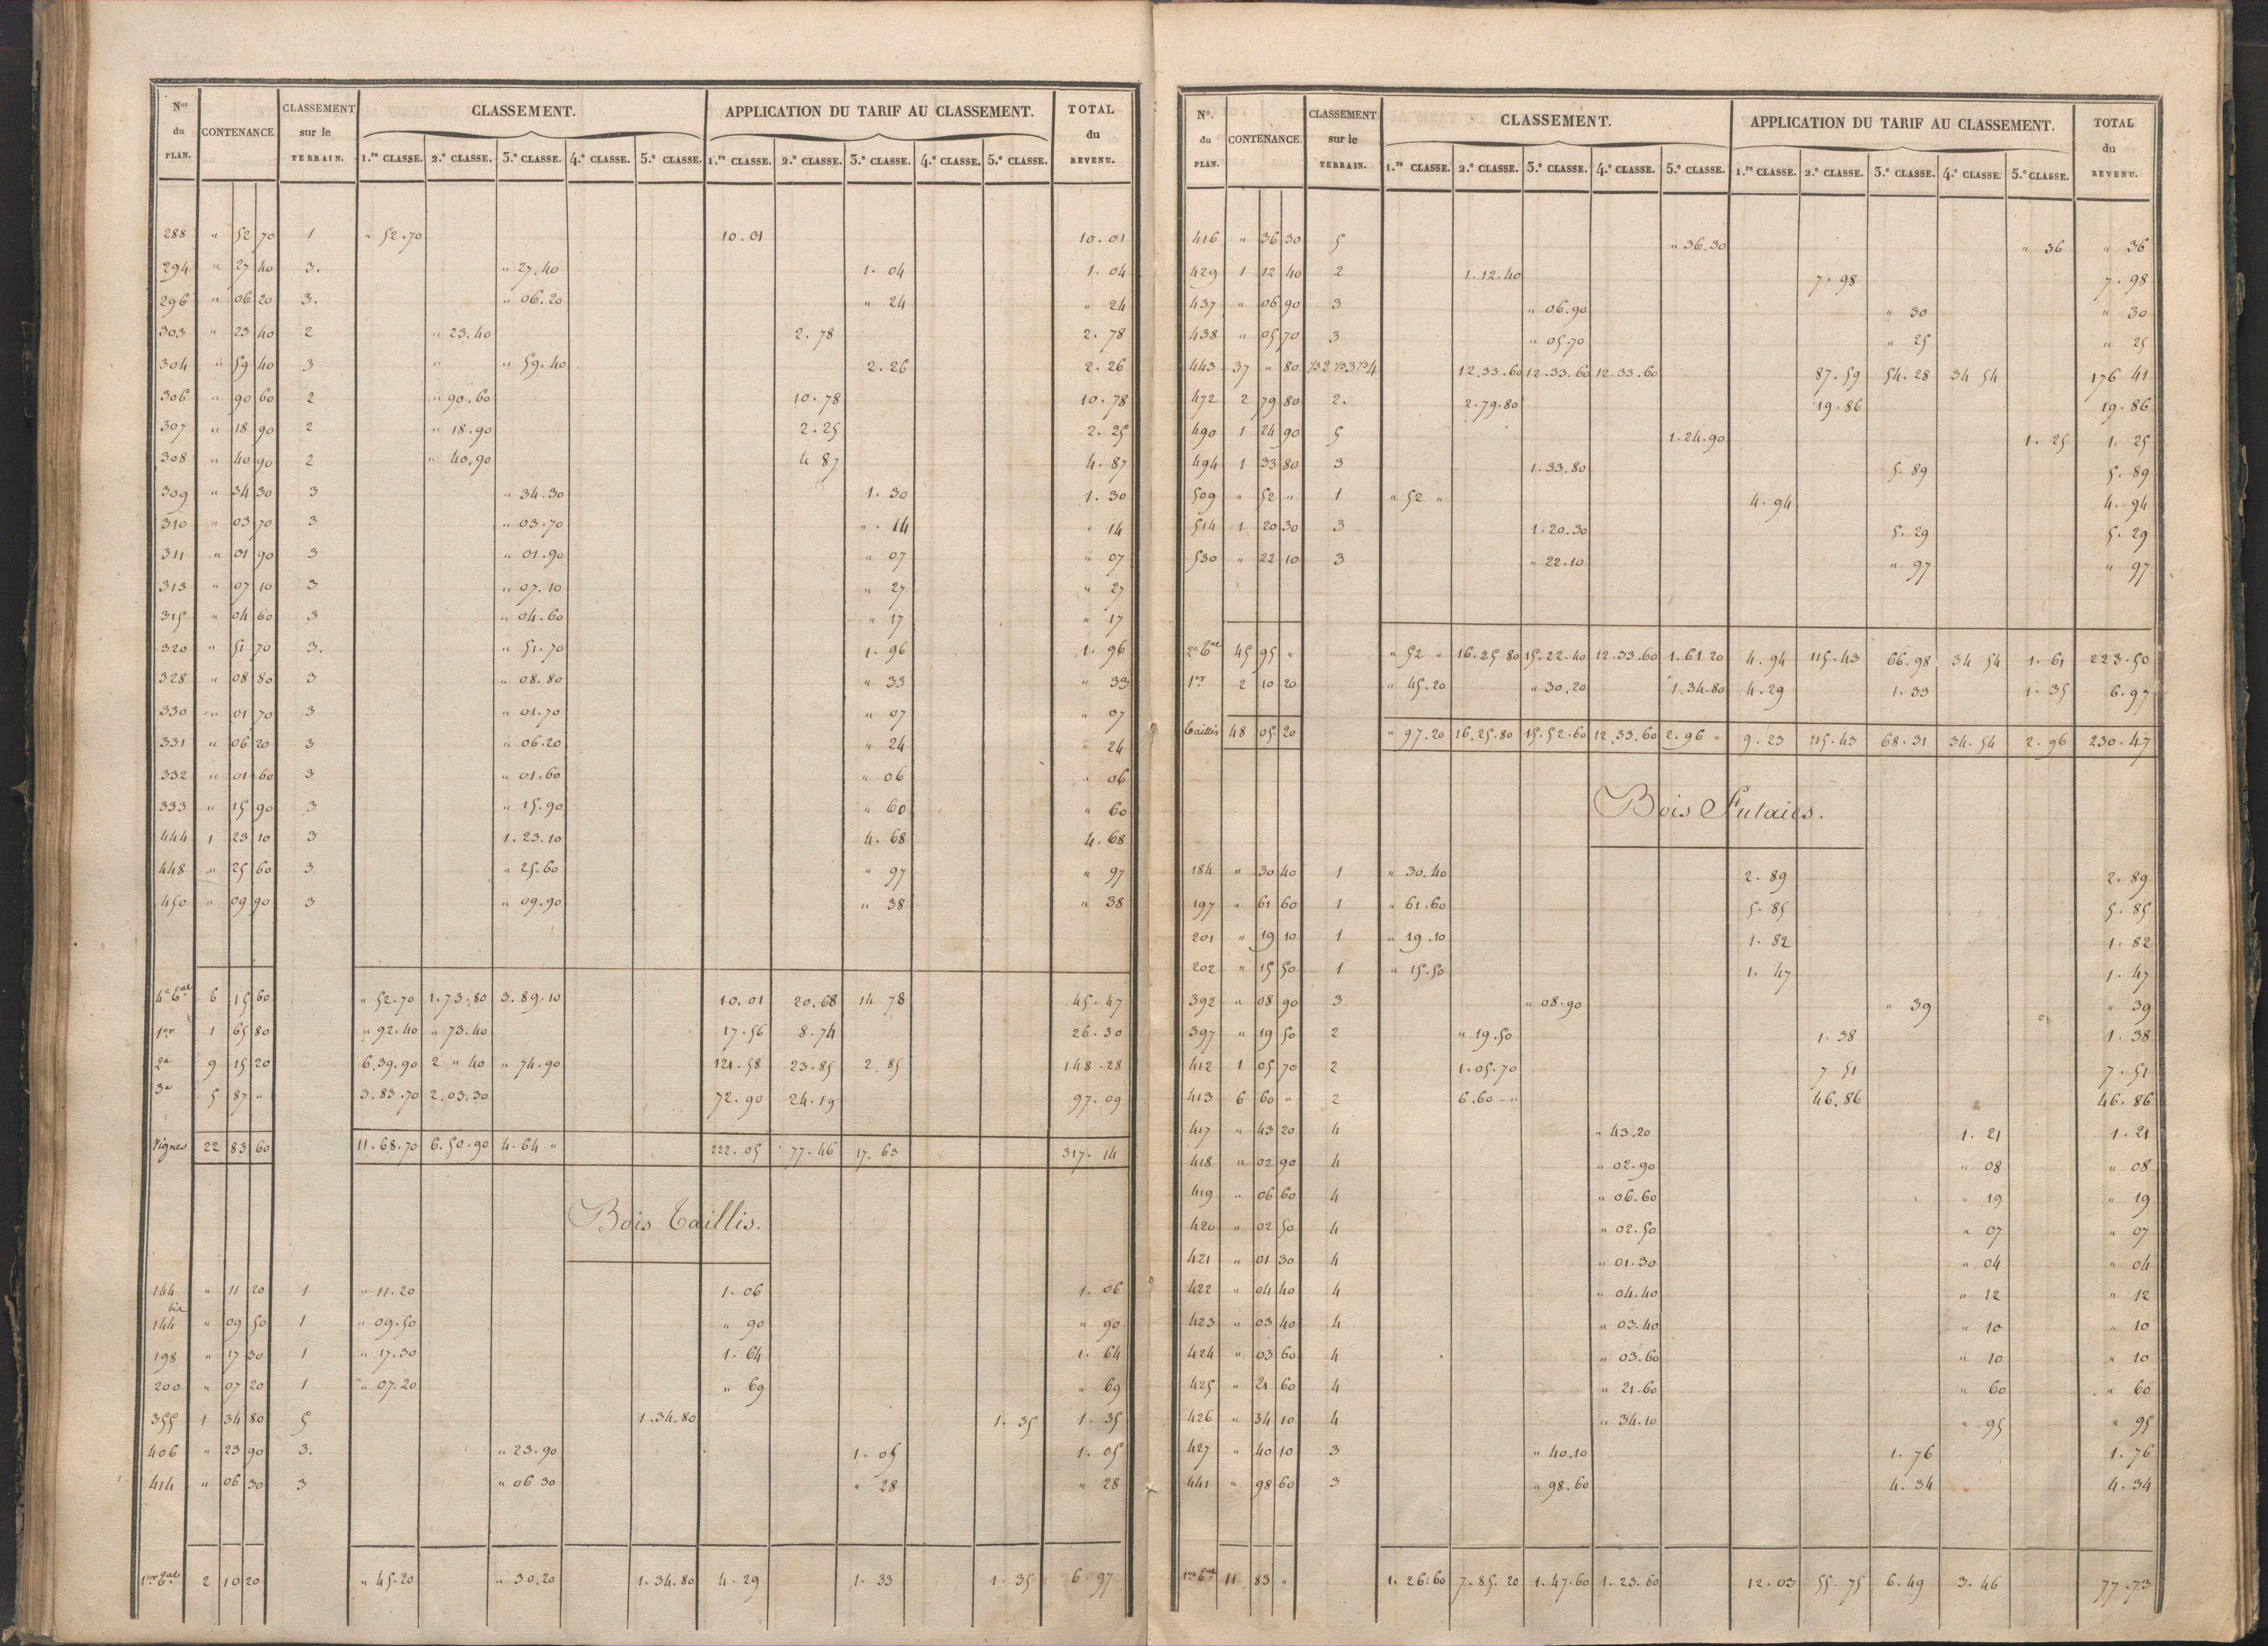 Nos du PLAN. CONTENANCE CLASSEMENT sur le TERRAIN. CLASSEMENT. APPLICATION DU TARIF AU CLASSEMENT. TOTAL du REVENU.
1.re CLASSE. 2.e CLASSE. 3.e CLASSE. 4.e CLASSE. 5.e CLASSE. 1.re CLASSE. 2.e CLASSE. 3.e CLASSE. 4.e CLASSE. 5.e CLASSE.
288 " 52 70 1 " 52.70 10.01 10.01
294 " 27 40 3. " 27.40 1. 04 1. 04
296 " 06 20 3. " 06.20 " 24 " 24
303 " 23 40 2 " 23.40 2. 78 2. 78
304 " 59 40 3 " " 59.40 2. 26 2. 26
306 " 90 60 2 " 90.60 10. 78 10. 78
307 " 18 90 2 " 18.90 2. 25 2. 25
308 " 40 90 2 " 40.90 4 87 4. 87
309 " 34 30 3 " 34.30 1. 30 1. 30
310 " 03 70 3 " 03.70 " 14 " 14
311 " 01 90 3 " 01.90 " 07 " 07
313 " 07 10 3 " 07.10 " 27 " 27
315 " 04 60 3 " 04.60 " 17 " 17
320 " 51 70 3. " 51.70 1. 96 1. 96
328 " 08 80 3 " 08.80 " 33 " 33
330 " 01 70 3 " 01.70 " 07 " 07
331 " 06 20 3 " 06.20 " 24 " 24
332 " 01 60 3 " 01.60 " 06 " 06
333 " 15 90 3 " 15.90 " 60 " 60
444 1 23 10 3 1.23.10 4. 68 4. 68
448 " 25 60 3 " 25.60 " 97 " 97
450 " 09 90 3 " 09.90 " 38 " 38
4e Tal 6 15 60 " 52.70 1.73.80 3.89.10 10.01 20.68 14 78 45.47
1er 1 65 80 " 92.40 " 73.40 17.56 8.74 26.30
2e 9 15 20 6.39.90 2 " 40 " 74.90 121.58 23.85 2.85 148.28
3e 5 87 " 3.83.70 2.03.30 72.90 24.19 97.09
Vignes 22 83 60 11.68.70 6.50.90 4.64 " 222.05 77.46 17.63 317.14
Bois Taillis.
144 " 11 20 1 " 11.20 1. 06 1. 06
144 bis " 09 50 1 " 09.50 " 90 " 90
198 " 17 30 1 " 17.30 1. 64 1. 64
200 " 07 20 1 " 07.20 " 69 " 69
355 1 34 80 5 1.34.80 1. 35 1. 35
406 " 23 90 3. " 23.90 1. 05 1. 05
414 " 06 30 3 " 06 30 " 28 " 28
1er Tal 2 10 20 " 45.20 " 30.20 1.34.80 4.29 1. 33 1. 35 6.97
No. du PLAN. CONTENANCE. CLASSEMENT sur le TERRAIN. CLASSEMENT. APPLICATION DU TARIF AU CLASSEMENT. TOTAL du REVENU.
1.re CLASSE. 2.e CLASSE. 3.e CLASSE. 4.e CLASSE. 5.e CLASSE. 1.re CLASSE. 2.e CLASSE. 3.e CLASSE. 4.e CLASSE. 5.e CLASSE.
416 " 36 30 5 " 36.30 " 36 " 36
429 1 12 40 2 1.12.40 7. 98 7. 98
437 " 06 90 3 " 06.90 " 30 " 30
438 " 05 70 3 " 05.70 " 25 " 25
443 37 " 80 1/3 2 1/3 3 1/3 4 12.33.60 12.33.60 12.33.60 87.59 54.28 34 54 176 41
472 2 79 80 2. 2.79.80 19.86 19.86
490 1 24 90 5 1.24.90 1. 25 1. 25
494 1 33 80 3 1.33.80 5. 89 5. 89
509 " 52 " 1 " 52 " 4. 94 4. 94
514 1 20 30 3 1.20.30 5. 29 5. 29
530 " 22 10 3 " 22.10 " 97 " 97
2e Tal 45 95 " " 52 " 16.25 80 15.22.40 12.33.60 1.61 20 4.94 115.43 66.98 34 54 1. 61 223.50
1er 2 10 20 " 45.20 " 30.20 1.34.80 4.29 1. 33 1. 35 6.97
Taillis 48 05 20 " 97.20 16.25.80 15.52.60 12.33.60 2.96 " 9.23 115.43 68.31 34.54 2.96 230.47
Bois Futaies.
184 " 30 40 1 " 30.40 2. 89 2. 89
197 " 61 60 1 " 61.60 5. 85 5. 85
201 " 19 10 1 " 19.10 1. 82 1. 82
202 " 15 50 1 " 15.50 1. 47 1. 47
392 " 08 90 3 " 08.90 " 39 " 39
397 " 19 50 2 " 19.50 1. 38 1. 38
412 1 05 70 2 1.05.70 7 51 7. 51
413 6 60 " 2 6.60 - " 46.86 46.86
417 " 43 20 4 " 43.20 1. 21 1. 21
418 " 02 90 4 " 02.90 " 08 " 08
419 " 06 60 4 " 06.60 " 19 " 19
420 " 02 50 4 " 02.50 " 07 " 07
421 " 01 30 4 " 01.30 " 04 " 04
422 " 04 40 4 " 04.40 " 12 " 12
423 " 03 40 4 " 03.40 " 10 " 10
424 " 03 60 4 " 03.60 " 10 " 10
425 " 21 60 4 " 21.60 " 60 " 60
426 " 34 10 4 " 34.10 " 95 " 95
427 " 40 10 3 " 40.10 1. 76 1. 76
441 " 98 60 3 " 98.60 4. 34 4. 34
1er Tal 11 83 " 1.26.60 7.85.20 1.47.60 1.23.60 12.03 55.75 6.49 3.46 77.73